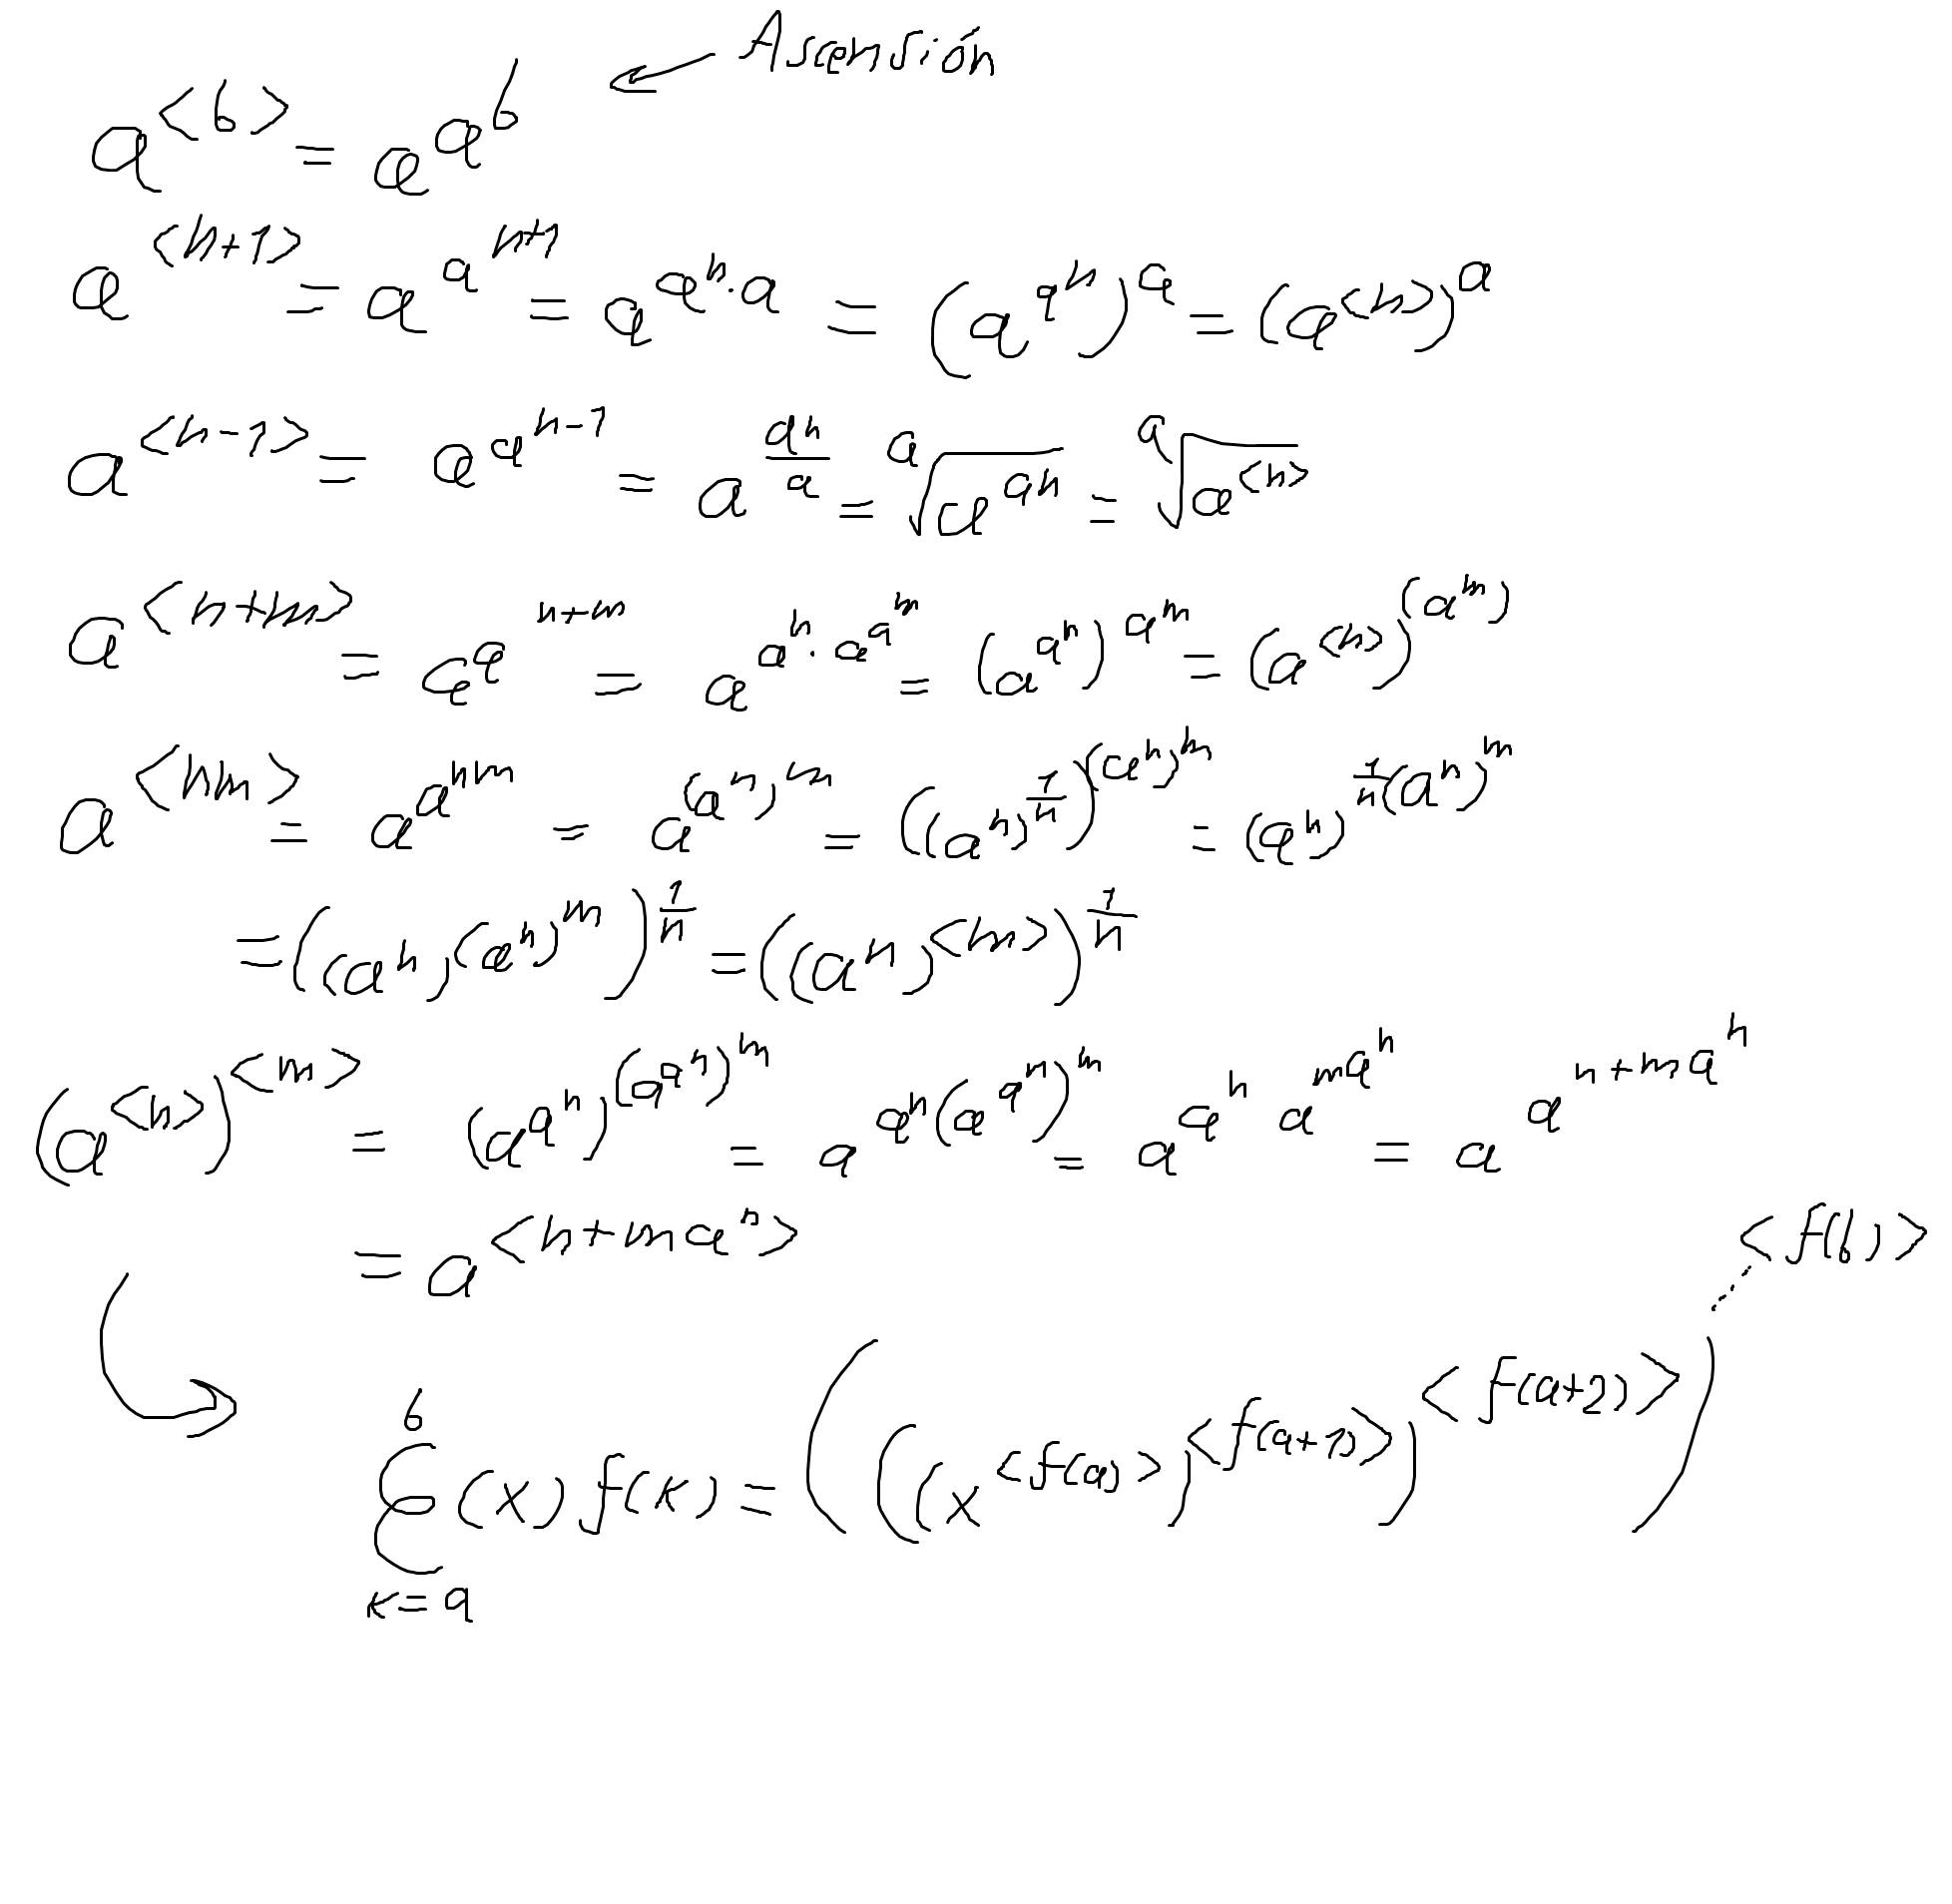 a^{<b>} = a^{a^b} ← Ascensión
a^{<n+1>} = a^{a^{n+1}} = a^{a^n · a} = (a^{a^n})^a = (a^{<n>})^a
a^{<n-1>} = a^{a^{n-1}} = a^{\frac{a^n}{a}} = \sqrt[a]{a^{a^n}} = \sqrt[a]{a^{<n>}}
a^{<n+m>} = a^{a^{n+m}} = a^{a^n · a^{a^m}} = (a^{a^n})^{a^m} = (a^{<n>})^{(a^m)}
a^{<nm>} = a^{a^{nm}} = a^{(a^n)^m} = ((a^n)^{\frac{1}{n}})^{(a^n)^m} = (a^n)^{\frac{1}{n}(a^n)^m}
= ((a^n)^{(a^n)^m})^{\frac{1}{n}} = ((a^n)^{<m>})^{\frac{1}{n}}
(a^{<n>})^{<m>} = (a^{a^n})^{(a^{a^n})^m} = a^{a^n (a^{a^n})^m} = a^{a^n a^{ma^n}} = a^{a^{n+ma^n}}
= a^{<n+ma^n>}
\overset{b}{\underset{k=a}{Ɛ}} (x) f(k) = (((x^{<f(a)>})^{<f(a+1)>})^{<f(a+2)>})^{⋰<f(b)>}